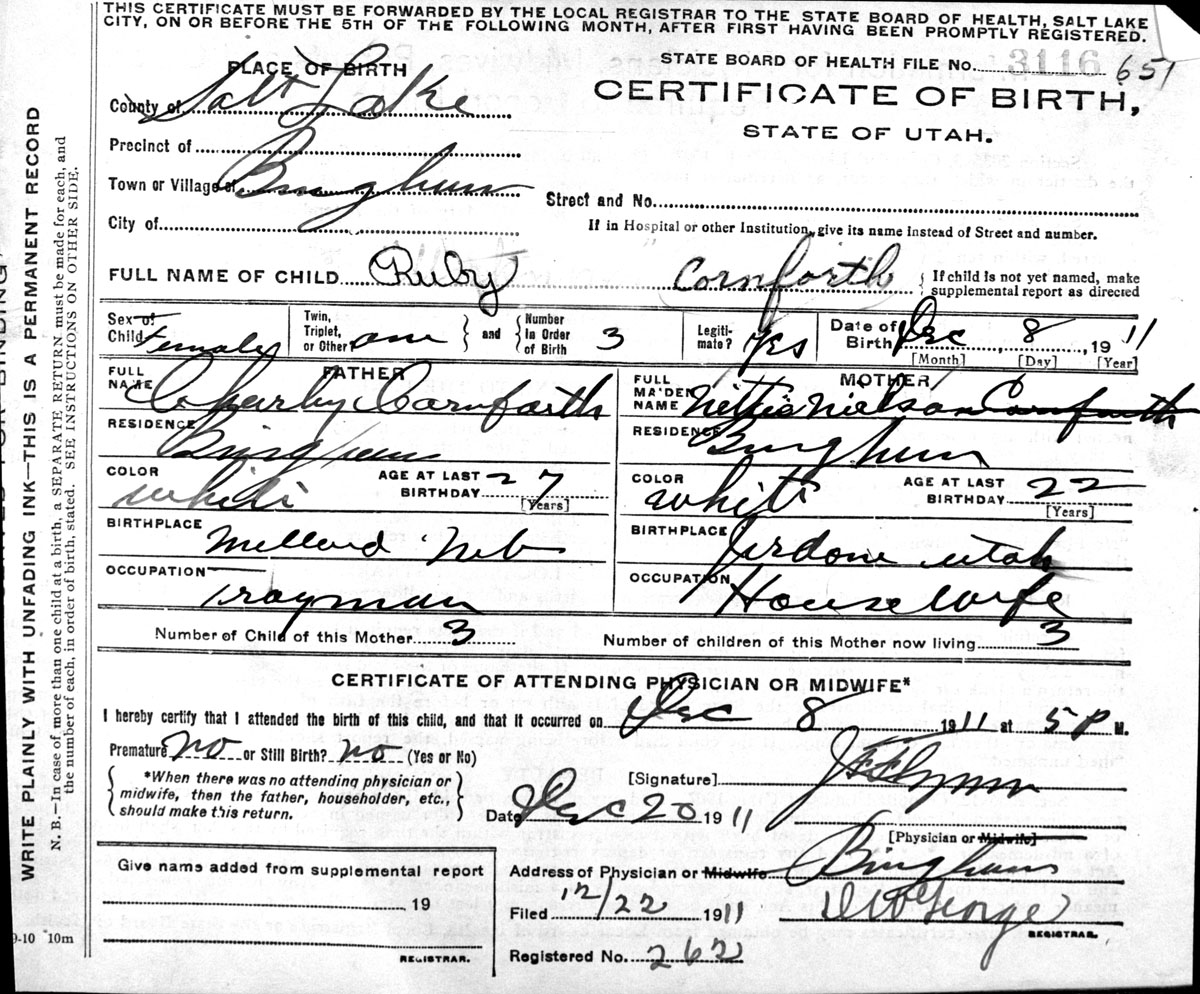 THIS CERTIFICATE MUST BE FORWARDED BY THE LOCAL REGISTRAR TO THE STATE BOARD OF HEALTH, SALT LAKE
CITY, ON OR BEFORE THE 5TH OF THE FOLLOWING MONTH, AFTER FIRST HAVING BEEN PROMPTLY REGISTERED.
STATE BOARD OF HEALTH FILE NO. 3116 651
CERTIFICATE OF BIRTH,
STATE OF UTAH.
PLACE OF BIRTH
County of Salt Lake
Precinct of
Town or Village of Bingham
Street and No.
City of
If in Hospital or other Institution, give its name instead of Street and number.
FULL NAME OF CHILD Ruby Cornforth { If child is not yet named, make
supplemental report as directed
Sex of Child Female
Twin, Triplet, or Other one } and { Number in Order of Birth 3
Legitimate? Yes
Date of Birth Dec 8, 1911
[Month] [Day] [Year]
FATHER
FULL NAME Cornforth
RESIDENCE Bingham
COLOR White
AGE AT LAST BIRTHDAY 27
[Years]
BIRTHPLACE Millard Neb
OCCUPATION Drayman
MOTHER
FULL MAIDEN NAME Nettie Nielson Cornforth
RESIDENCE Bingham
COLOR White
AGE AT LAST BIRTHDAY 22
[Years]
BIRTHPLACE Utah
OCCUPATION Housewife
Number of Child of this Mother 3
Number of children of this Mother now living 3
CERTIFICATE OF ATTENDING PHYSICIAN OR MIDWIFE*
I hereby certify that I attended the birth of this child, and that it occurred on Dec 8 1911 at 5 P M.
Premature no or Still Birth? no (Yes or No)
{ *When there was no attending physician or
midwife, then the father, householder, etc.,
should make this return. }
[Signature] Flynn
Date Dec 20 1911
[Physician or Midwife]
Address of Physician or Midwife Bingham
Give name added from supplemental report
19
REGISTRAR.
Filed 12/22 1911 George
REGISTRAR.
Registered No. 262
9-10 10m
WRITE PLAINLY WITH UNFADING INK—THIS IS A PERMANENT RECORD
N. B. In case of more than one child at a birth, a SEPARATE RETURN must be made for each, and
the number of each, in order of birth, stated. SEE INSTRUCTIONS ON OTHER SIDE.